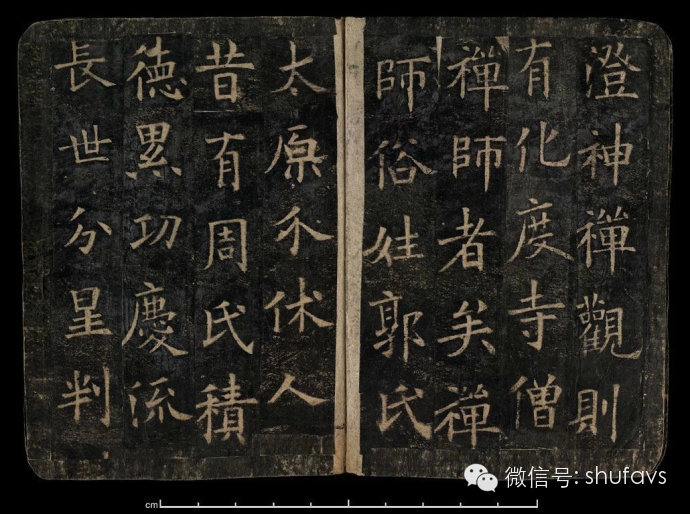 澄神禪觀則
有化度寺僧
禪師者矣禪
師俗姓郭氏
太原介休人
昔有周氏積
德累功慶流
長世分星判
cm
微信号: shufavs